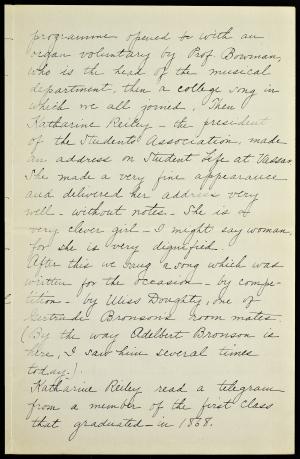 programme opened to with an
organ voluntary by Prof. Bowman,
who is the head of the musical
department, then a college song in
which we all joined. Then
Katharine Reiley - the president
of the Students' Association, made
an address on Student Life at Vassar.
She made a very fine appearance
and delivered her address very
well - without notes - She is a
very clever girl - I might say woman,
for she is very dignified.
After this we sang a song which was
written for the occasion - by compe-
tition - by Miss Doughty, one of
Gertrude Bronson's room mates.
(By the way Adelbert Bronson is
here, I saw him several times
today.)
Katharine Reiley read a telegram
from a member of the first class
that graduated - in 1868.